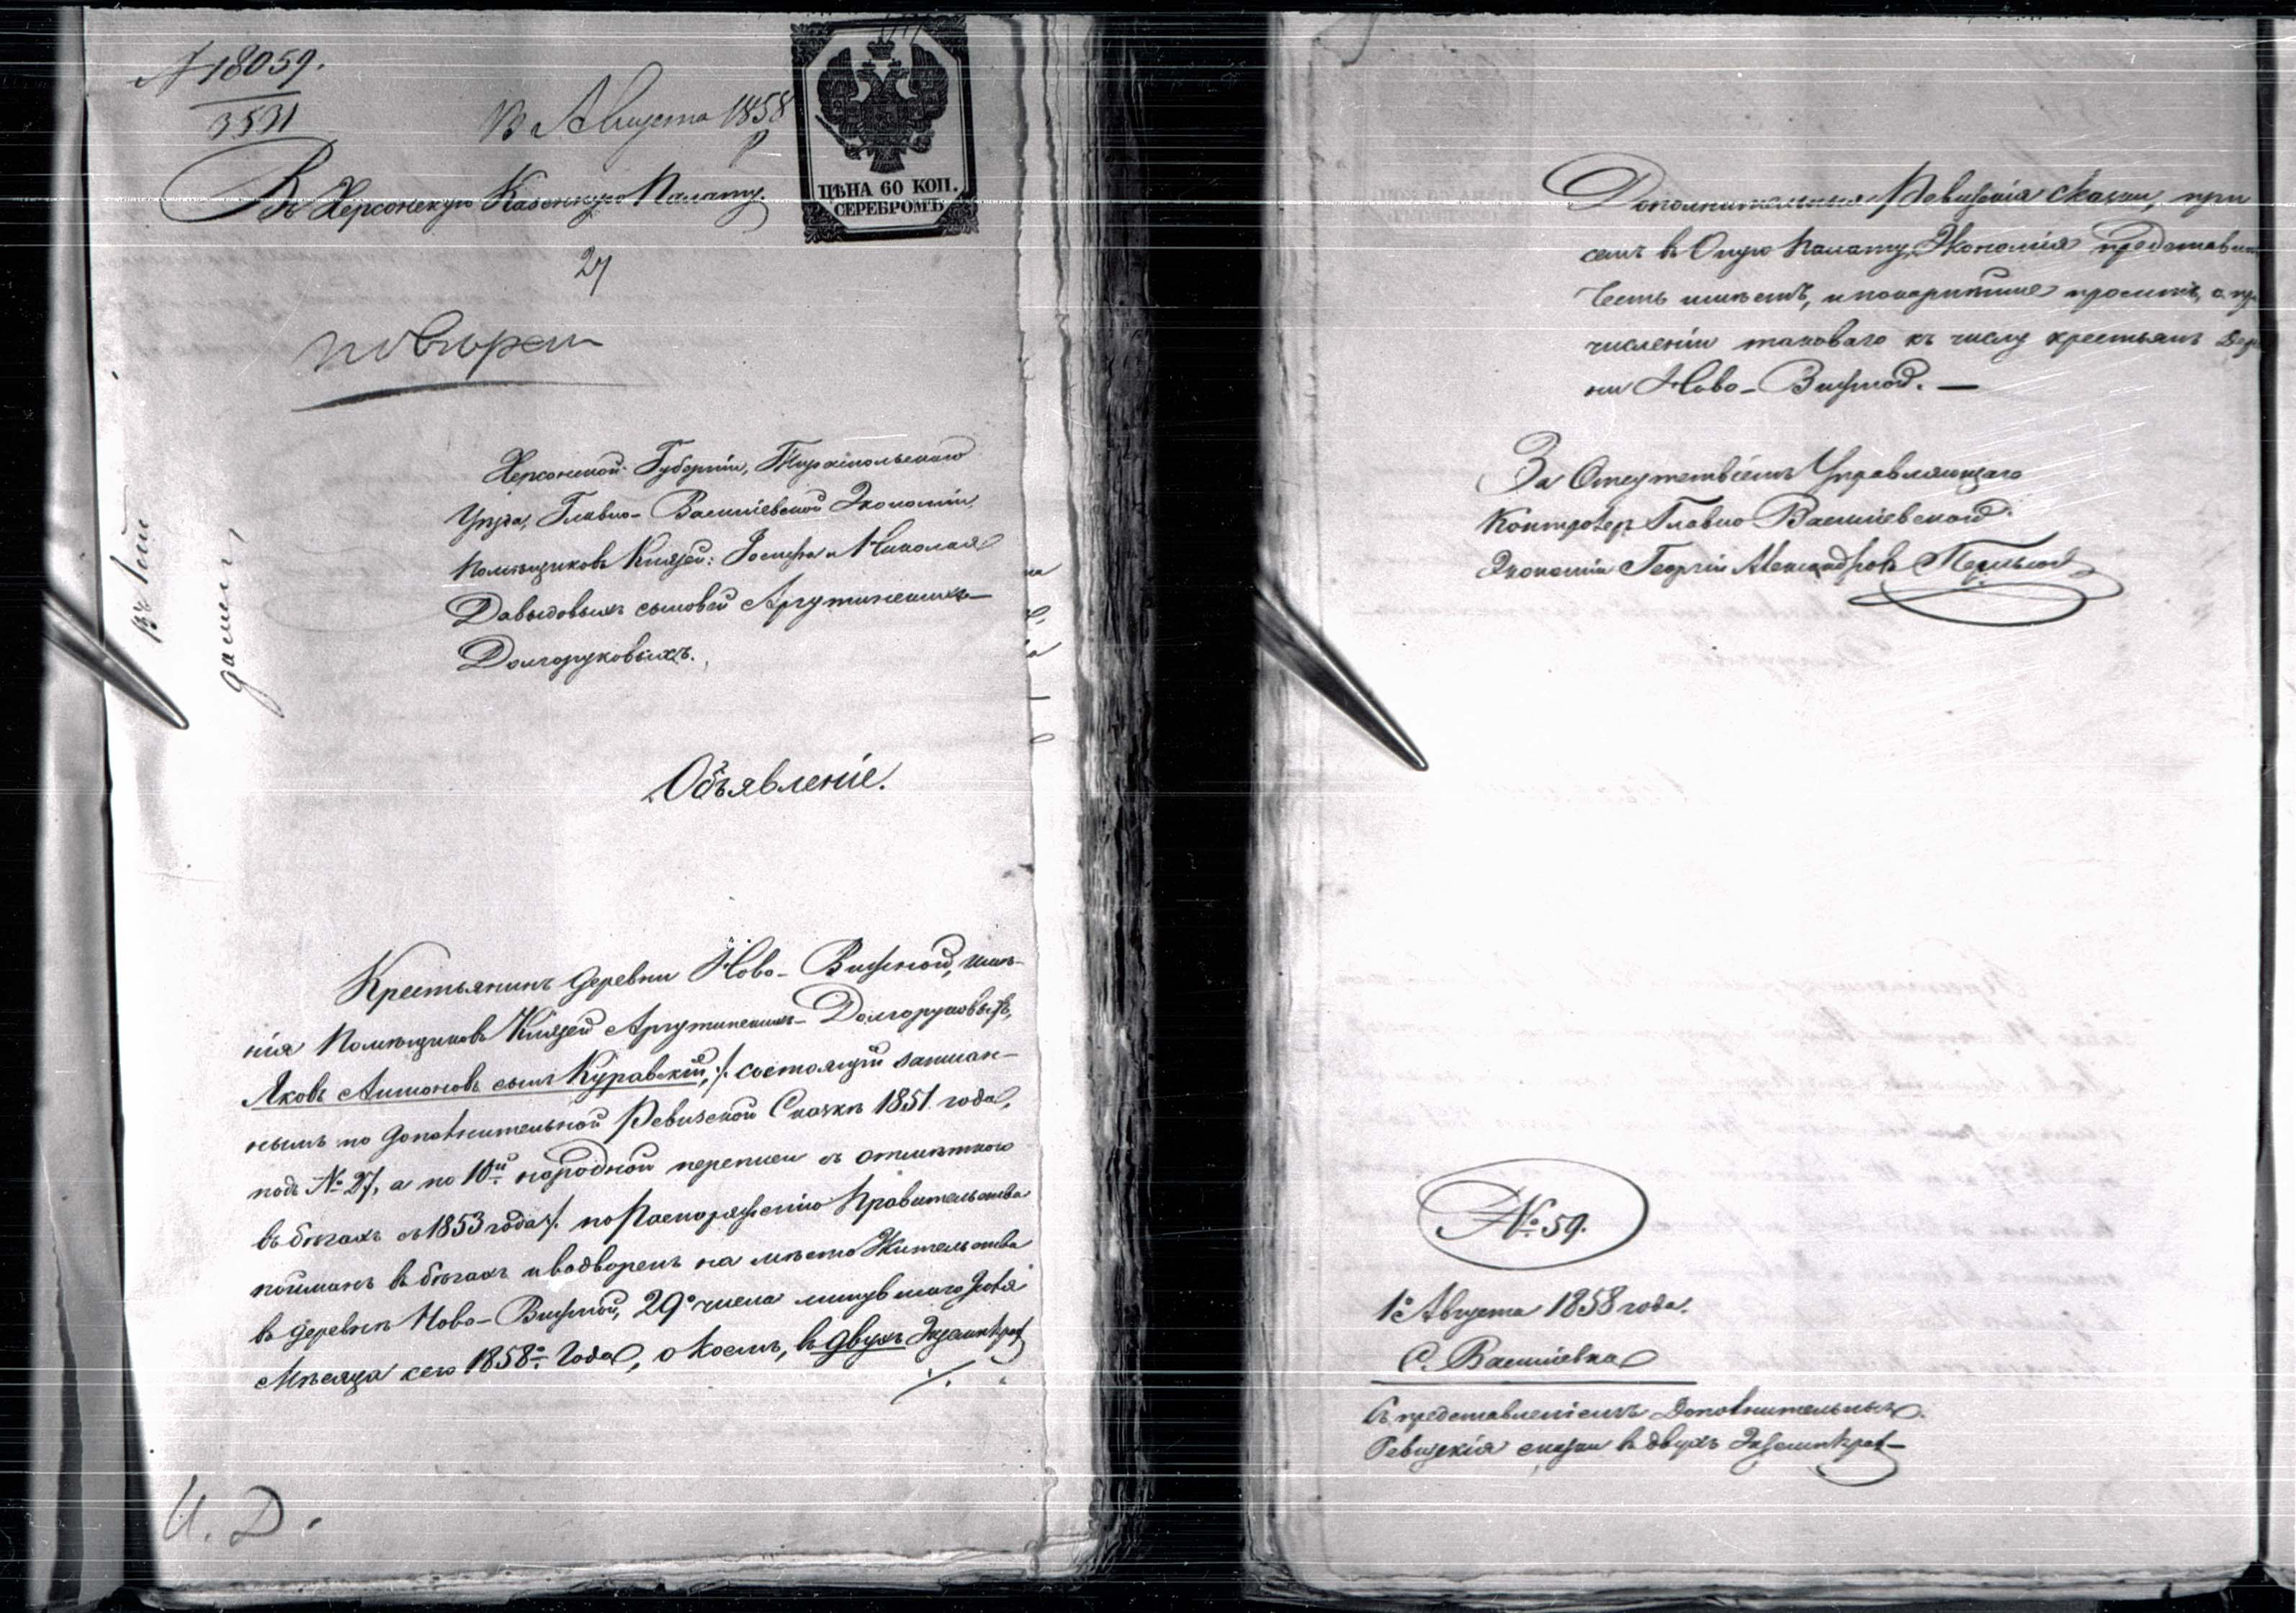 № 18059.
3531
13 Августа 1858
ЦѢНА 60 КОП.
СЕРЕБРОМЪ
Въ Херсонскую Казенную Палату.
27
Херсонской Губерніи, Тираспольскаго
Уѣзда, Главно-Василіевской Экономіи,
Помѣщиковъ Князей: Іосифа и Николая
Давыдовыхъ сыновей Аргутинскихъ-
Долгоруковыхъ.
Объявленіе.
Крестьянинъ деревни Ново-Вижной, имѣ-
нія Помѣщиковъ Князей Аргутинскихъ-Долгоруковыхъ,
Яковъ Антоновъ сынъ Куравскій, /. состоящій записан-
нымъ по дополнительной Ревизской Сказкѣ 1851 года,
подъ № 27, а по 10й народной переписи съ отмѣткою
въ бѣгахъ съ 1853 года /. по Распоряженію Правительства
пойманъ въ бѣгахъ и водворенъ на мѣсто Жительства
въ деревнѣ Ново-Вижной, 29го числа минувшаго Іюля
Мѣсяца сего 1858го Года, о коемъ, въ двухъ Экземпляр
./.
И. Д.
Дополнительныя Ревизскія Сказки, при
семъ въ Оную Палату, Экономія представить
Честь имѣетъ, и покорнѣйше проситъ, о при
численіи таковаго къ числу крестьянъ Дерев
ни Ново-Вижной. —
За Отсутствіемъ Управляющаго
Контролер Главно Василіевской
Экономіи Георгій Александровъ
№ 59.
1го Августа 1858 года.
С. Василіевка
Съ представленіемъ Дополнительныхъ
Ревизскія сказки въ двухъ Экземпляр-